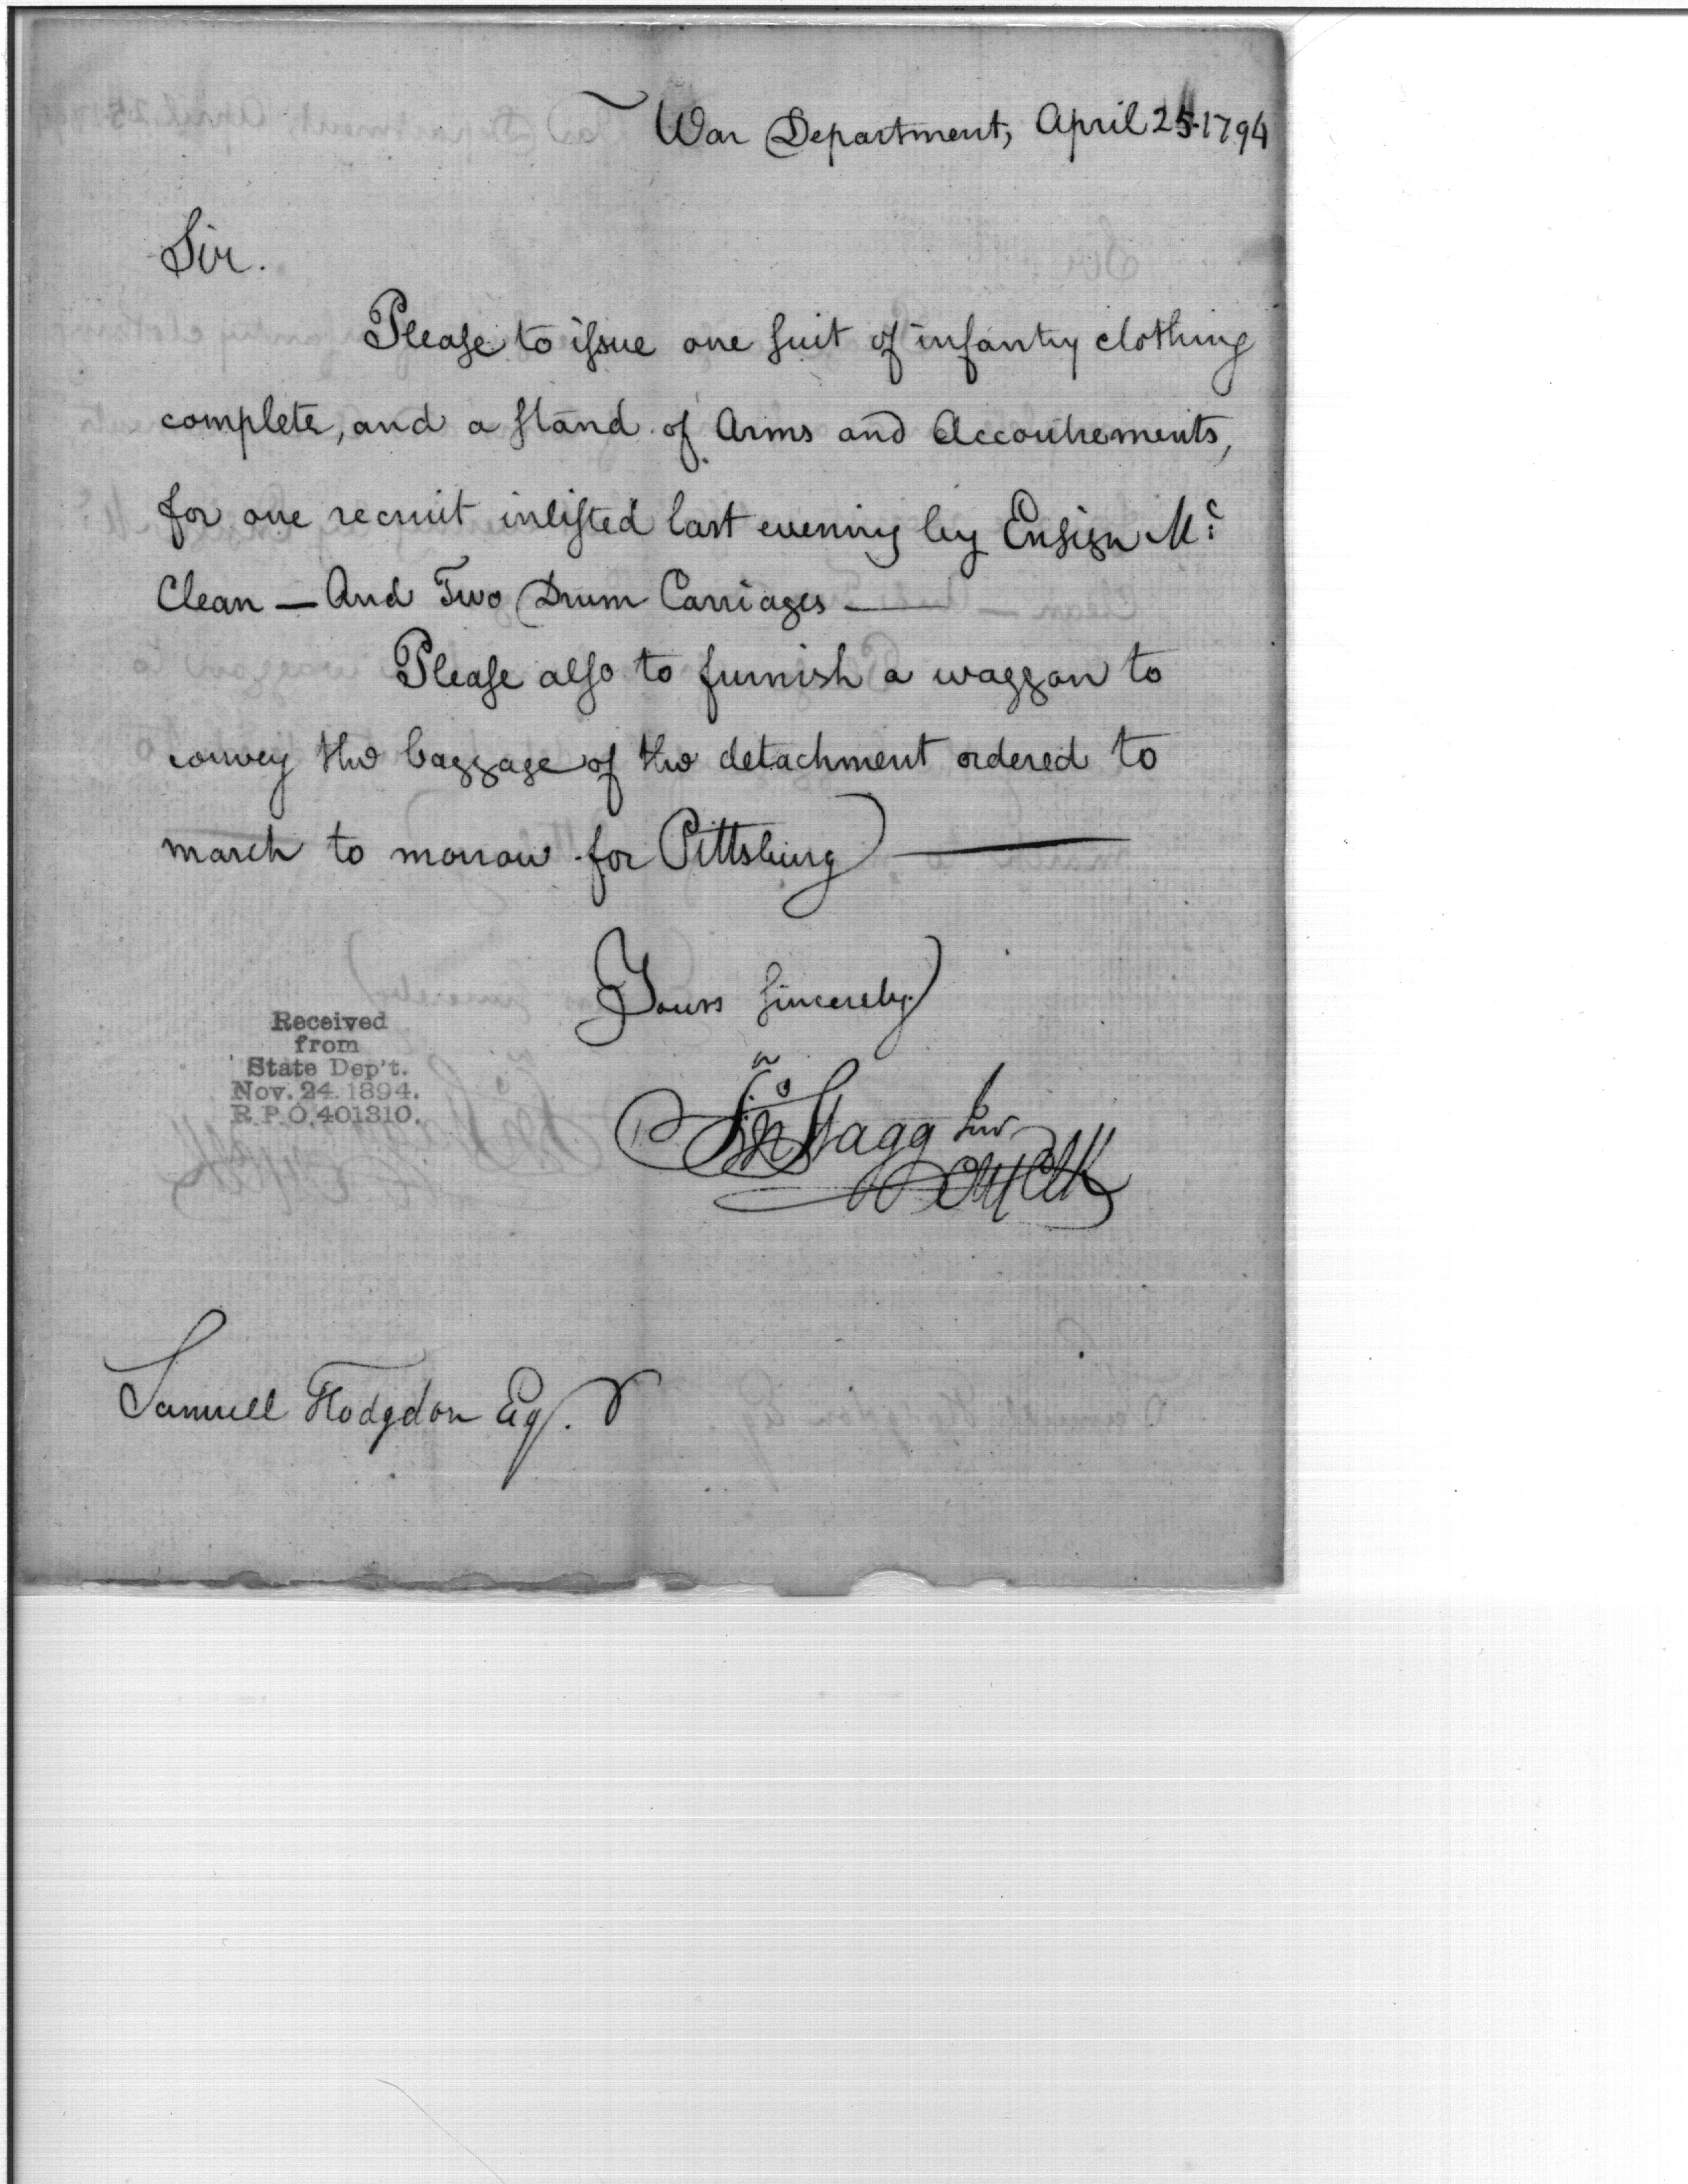 War Department, April 25. 1794
Sir.
Please to issue one suit of infantry clothing
complete, and a stand of Arms and Accoutrements,
for one recruit inlisted last evening by Ensign Mc
Clean — And Two Drum Carriages —
Please also to furnish a waggon to
convey the baggage of the detachment ordered to
march to morrow for Pittsburg —
Yours sincerely
Jno Stagg Jur
Received
from
State Dep't.
Nov. 24 1894.
R.P.O. 401310.
Samuel Hodgdon Esq.